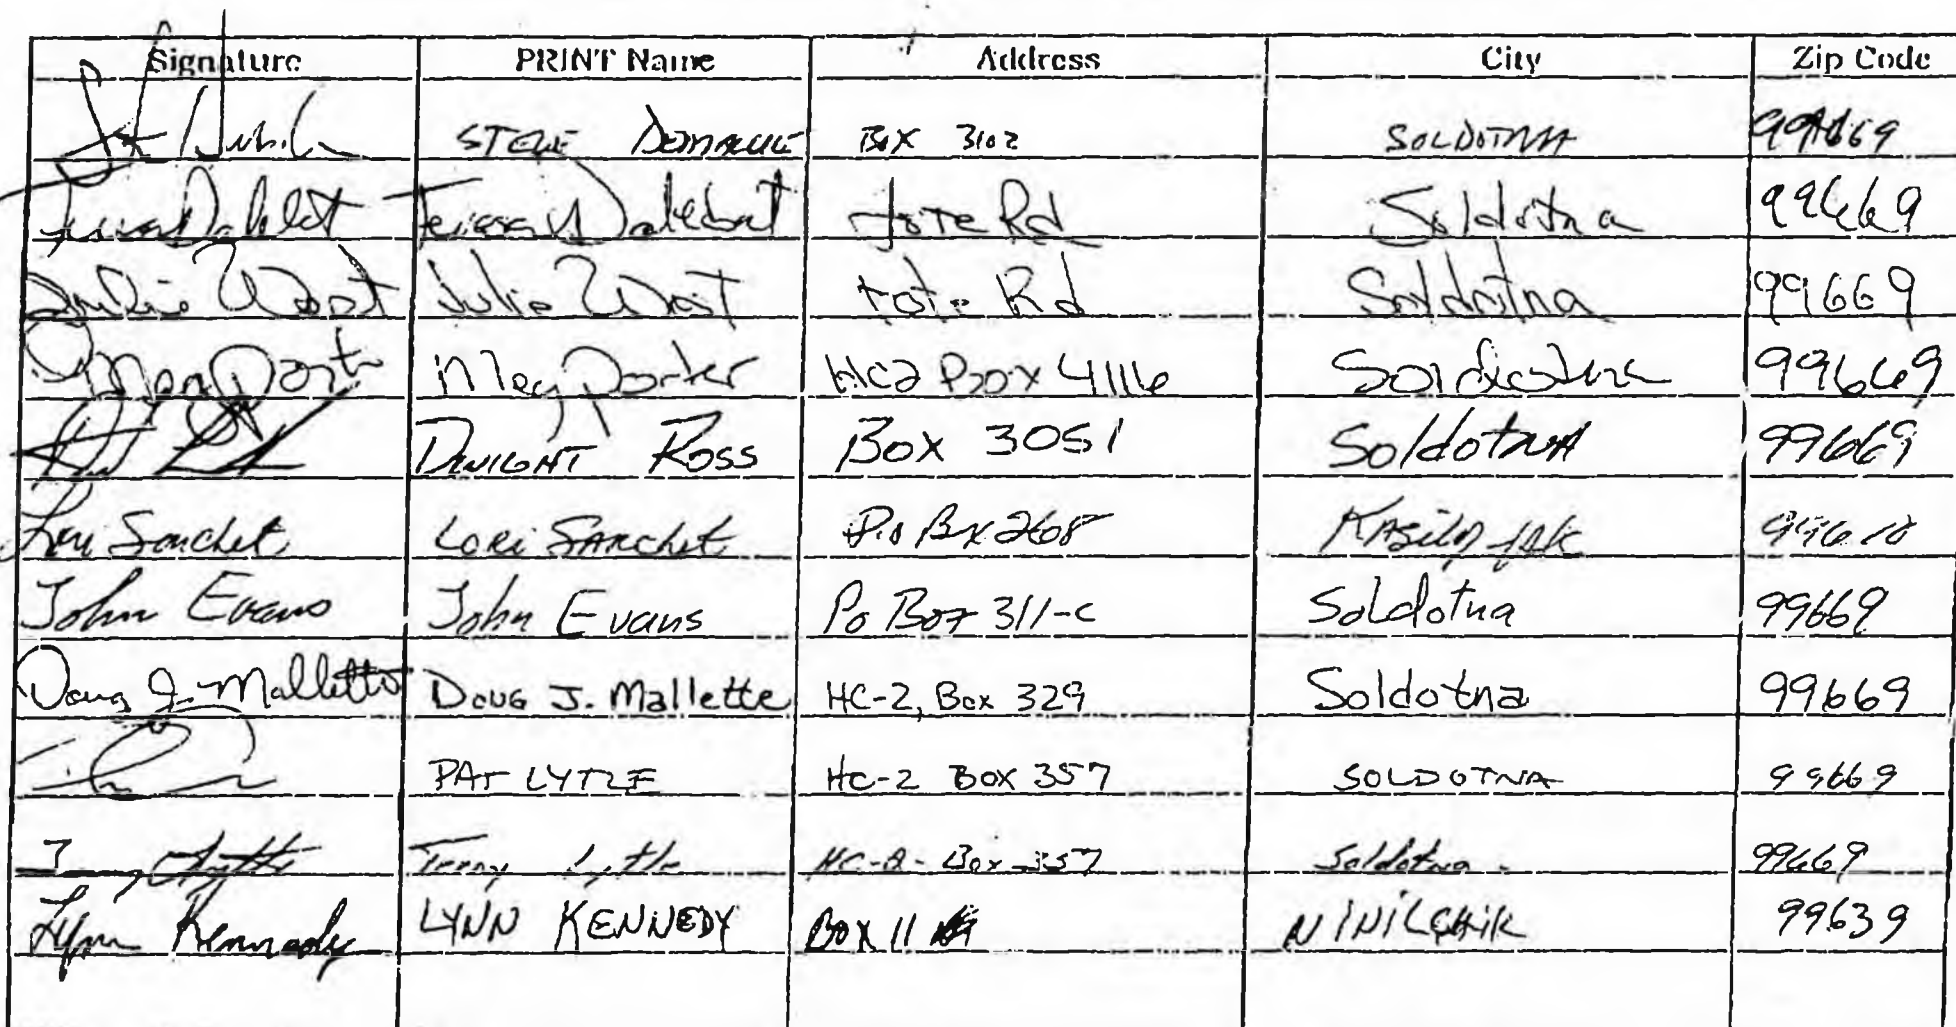 Signature PRINT Name Address City Zip Code
STEVE BOX 3102 SOLDOTNA 99669
Tote Rd Soldotna 99669
Julie West Julie West tote Rd Soldotna 99669
Meg Porter Meg Porter HC2 Box 411B Soldotna 99669
DWIGHT ROSS Box 3051 SoldotnA 99669
Lori Sanchet LORI SANCHEt P.O Bx 2608 KAsilof AK 99610
John Evans John Evans Po Box 311-C Soldotna 99669
Doug J. Mallette Doug J. Mallette HC-2, Box 329 Soldotna 99669
PAT LYTLE HC-2 BOX 357 SOLDOTNA 99669
Terry Lytle HC-2- Box 357 Soldotna 99669
Lynn Kennedy LYNN KENNEDY BOX 11 NINILCHiK 99639